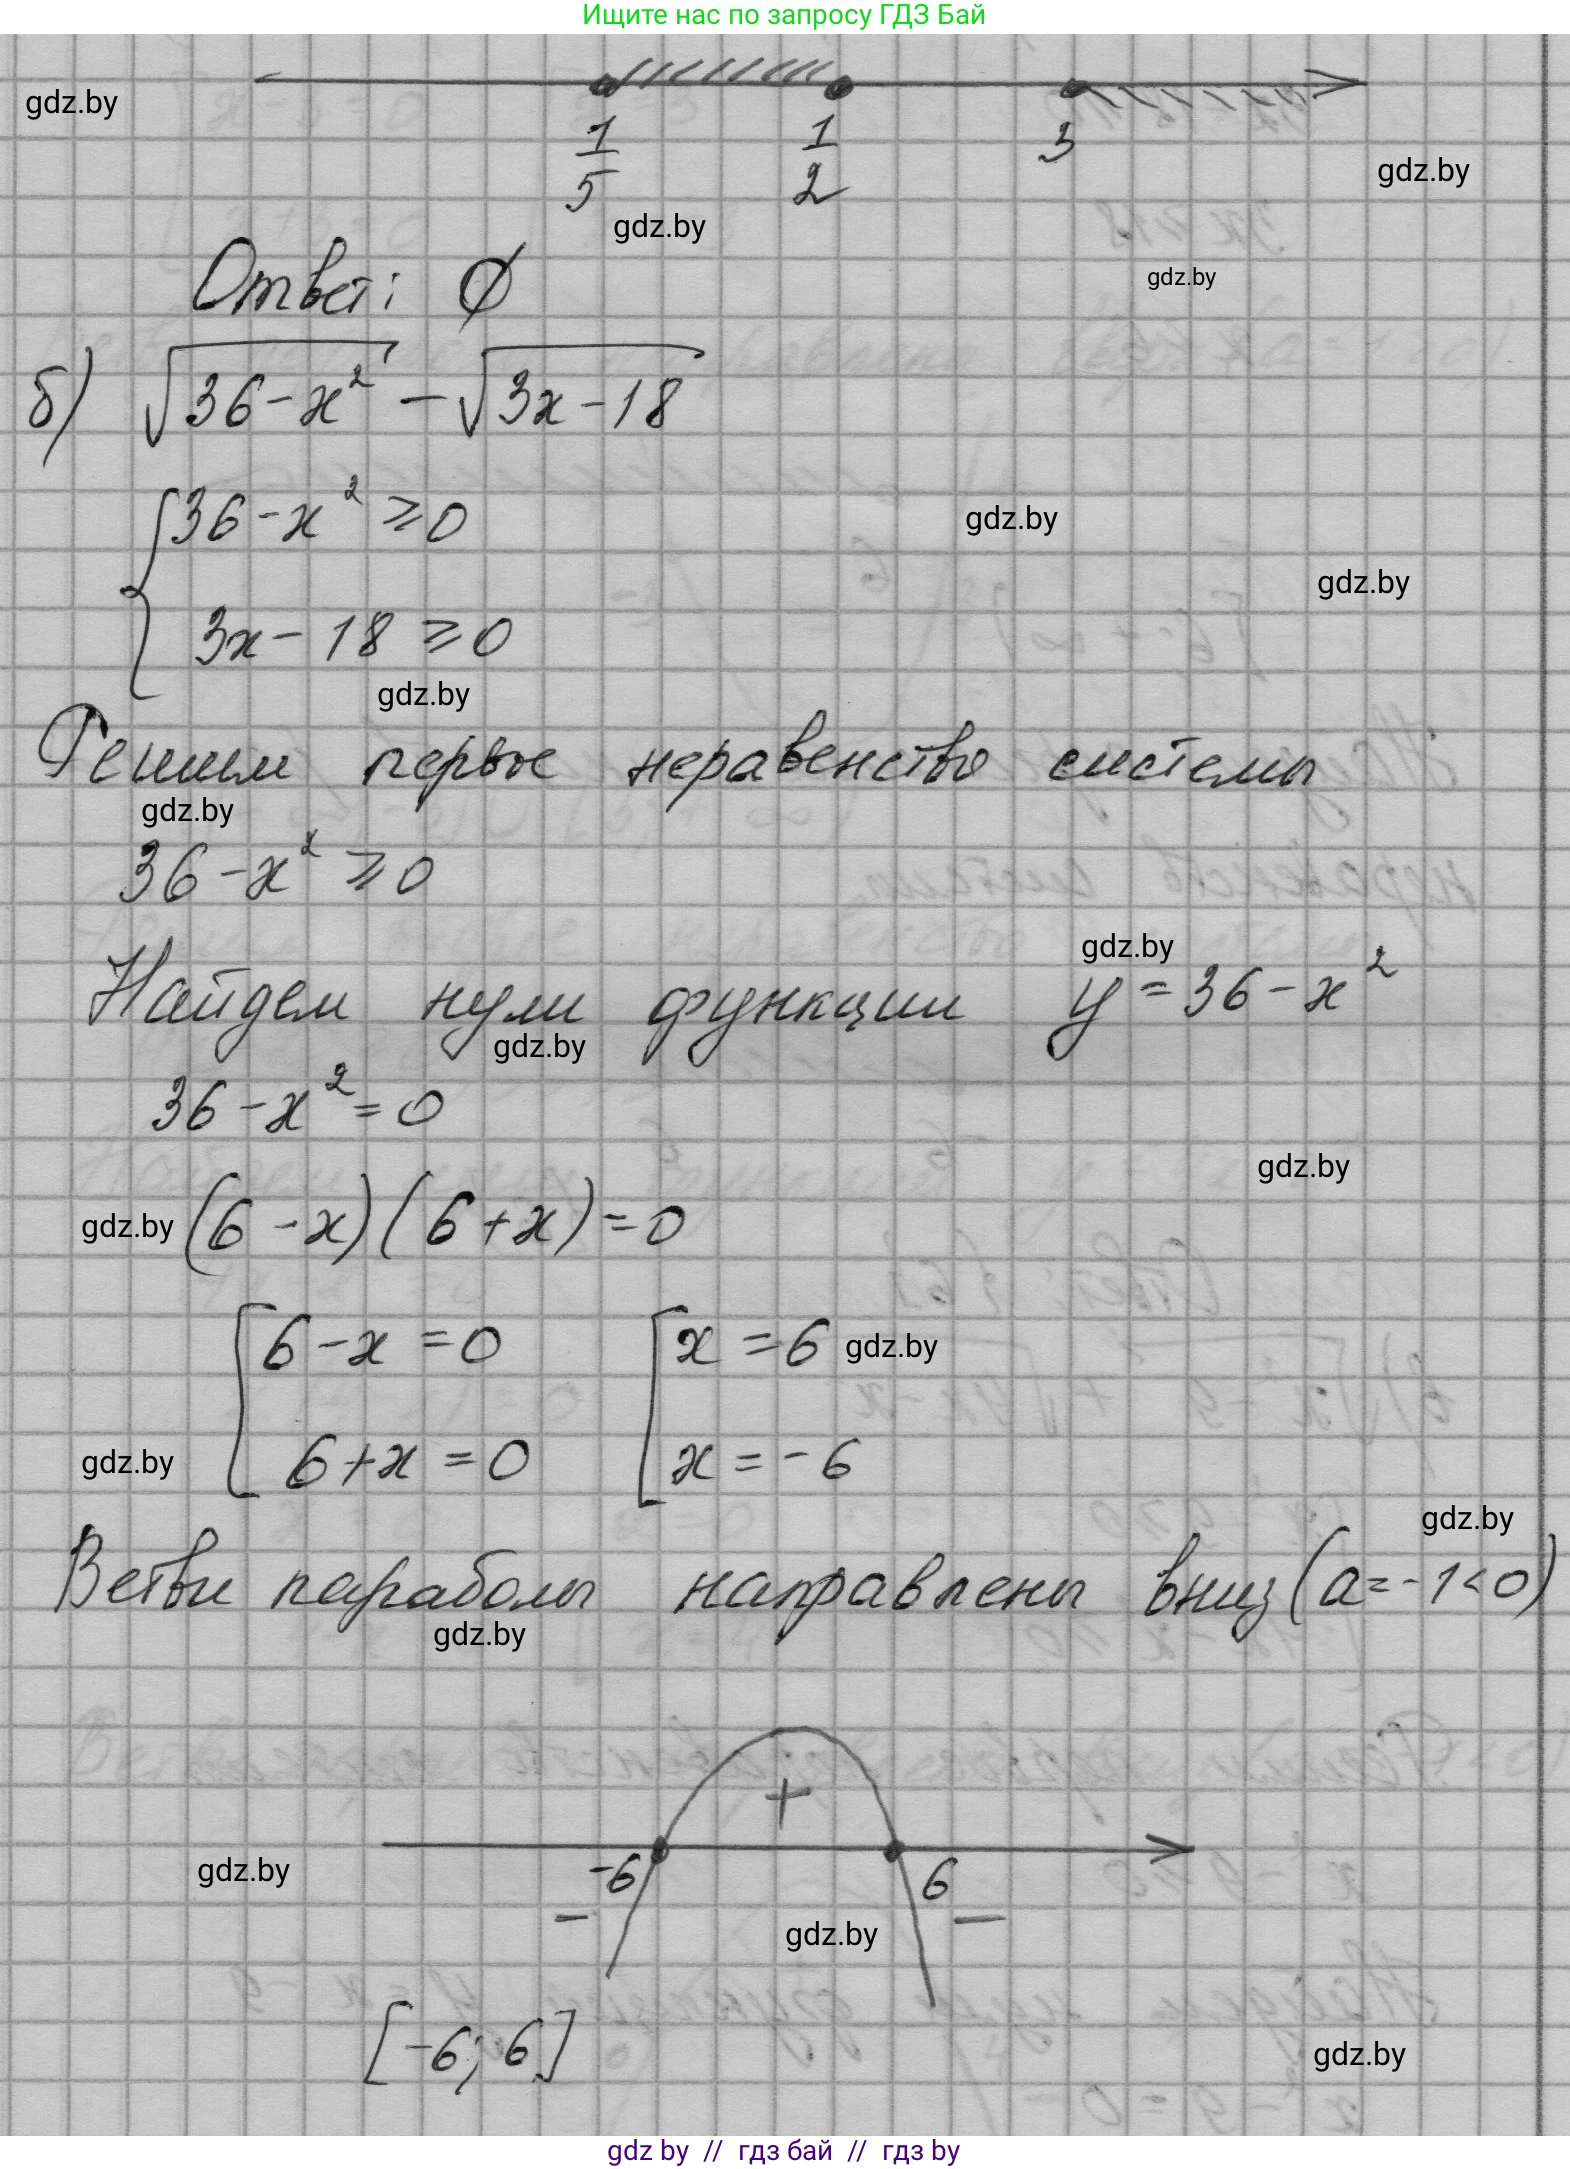 Ищите нас по запросу ГДЗ Бай
gdz.by
1/5 1/2 3
gdz.by
gdz.by
gdz.by
Ответ: ∅
б) √(36-x²) - √(3x-18)
36-x² ⩾ 0
gdz.by
gdz.by
3x-18 ⩾ 0
gdz.by
Решим первое неравенство системы
gdz.by
36-x² ⩾ 0
gdz.by
Найдем нули функции y = 36-x²
gdz.by
36-x² = 0
gdz.by
gdz.by (6-x)(6+x) = 0
6-x = 0 x = 6 gdz.by
gdz.by 6+x = 0 x = -6
gdz.by
Ветви параболы направлены вниз (a = -1 < 0)
gdz.by
+
gdz.by -6 6
- gdz.by -
[-6; 6]
gdz.by
gdz by // гдз бай // гдз by